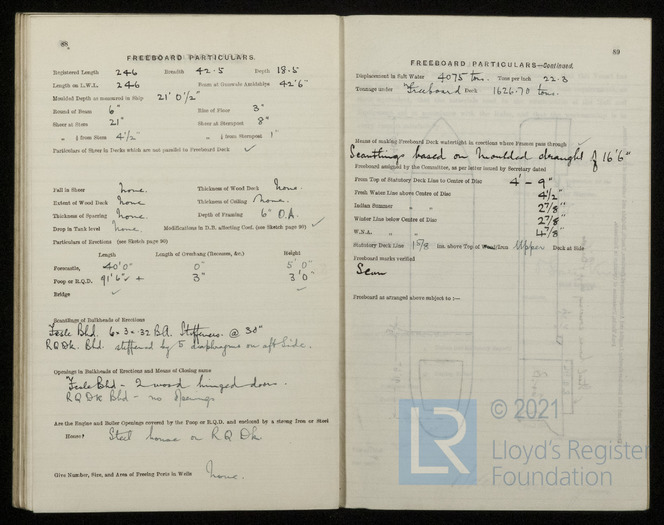 88
FREEBOARD PARTICULARS.
Registered Length 246 Breadth 42.5 Depth 18.5
Length on L.W.L. 246 Beam at Gunwale Amidships 42'6"
Moulded Depth as measured in Ship 21' 0 1/2"
Round of Beam 6" Rise of Floor 3"
Sheer at Stem 21" Sheer at Sternpost 8"
" 1/8 from Stem 4 1/2" " 1/8 from Sternpost 1"
Particulars of Sheer in Decks which are not parallel to Freeboard Deck ✓
Fall in Sheer None. Thickness of Wood Deck None.
Extent of Wood Deck None Thickness of Ceiling None.
Thickness of Sparring None. Depth of Framing 6" O.A.
Drop in Tank level None. Modifications in D.B. affecting Coef. (see Sketch page 90) ✓
Particulars of Erections (see Sketch page 90)
Length Length of Overhang (Recesses, &c.) Height
Forecastle, 40'0" 0" 5' 0"
Poop or R.Q.D. 91'6" + 3" 3' 0"
Bridge ✓ ✓
Scantlings of Bulkheads of Erections
Fcsle Bhd. 6 × 3 × .32 B.A. Stiffeners @ 30"
R.Q.Dk. Bhd. stiffened by 5 diaphragms on aft side.
Openings in Bulkheads of Erections and Means of Closing same
Fcsle Bhd - 2 wood hinged doors.
R Q Dk Bhd - no openings
Are the Engine and Boiler Openings covered by the Poop or R.Q.D. and enclosed by a strong Iron or Steel
House? Steel house on R Q Dk
Give Number, Size, and Area of Freeing Ports in Wells None.
89
FREEBOARD PARTICULARS—Continued.
Displacement in Salt Water 4075 tons. Tons per inch 22.3
Tonnage under Freeboard Deck 1626.70 tons.
Means of making Freeboard Deck watertight in erections where Frames pass through ✓
Scantlings based on moulded draught of 16'6"
Freeboard assigned by the Committee, as per letter issued by Secretary dated
From Top of Statutory Deck Line to Centre of Disc 4' - 9"
Fresh Water Line above Centre of Disc 4 1/2"
Indian Summer " " 2 7/8"
Winter Line below Centre of Disc 2 7/8"
W.N.A. " " 4 7/8"
Statutory Deck Line 1 5/8 ins. above Top of Wood/Iron Upper Deck at Side
Freeboard marks verified
Seen
Freeboard as arranged above subject to :—
© 2021
LR Lloyd's Register
Foundation